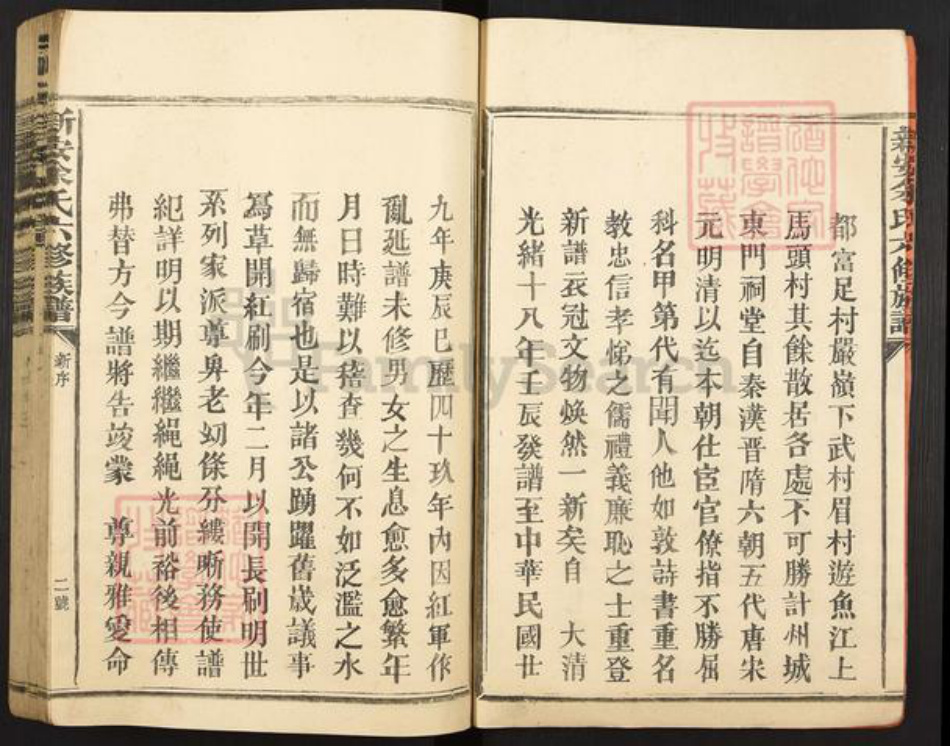 新安余氏六修族譜
都富足村嚴嶺下武村眉村遊魚江上
馬頭村其餘散居各處不可勝計州城
東門祠堂自秦漢晉隋六朝五代唐宋
元明清以迄本朝仕宦官僚指不勝屈
科名甲第代有聞人他如敦詩書重名
教忠信孝悌之儒禮義廉恥之士重登
新譜衣冠文物煥然一新矣自 大清
光緒十八年壬辰發譜至中華民國廿
九年庚辰已歷四十玖年內因紅軍作
亂延譜未修男女之生息愈多愈繁年
月日時難以稽查幾何不如泛濫之水
而無歸宿也是以諸公踴躍舊歲議事
爲草開紅刷今年二月以開長刷明世
系列家派尊卑老幼條分縷晰務使譜
紀詳明以期繼繼繩繩光前裕後相傳
弗替方今譜將告竣蒙 尊親雅愛命
新安余氏六修族譜
新序
二號
FamilySearch